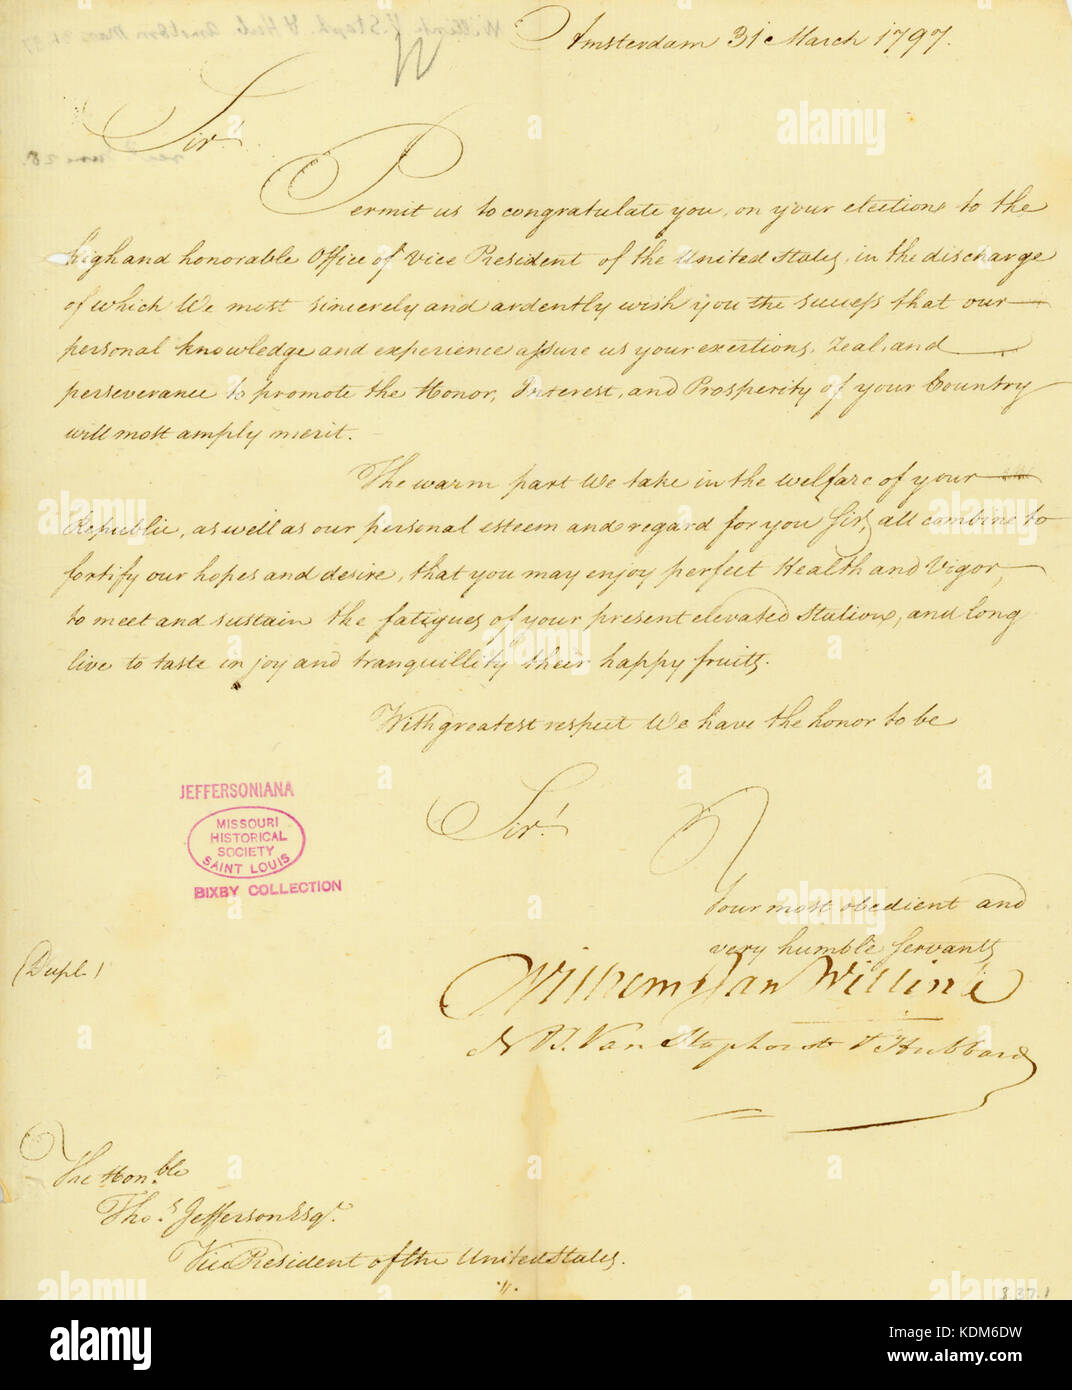 Amsterdam 31 March 1797.
Sir!
Permit us to congratulate you, on your election to the
high and honorable Office of Vice President of the United States, in the discharge
of which We most sincerely and ardently wish you the success that our
personal knowledge and experience assure us your exertions, Zeal, and
perseverance to promote the Honor, Interest, and Prosperity of your Country
will most amply merit.
The warm part We take in the welfare of your
Republic, as well as our personal esteem and regard for you Sir, all combine to
fortify our hopes and desire, that you may enjoy perfect Health and Vigor,
to meet and sustain the fatigues of your present elevated Station, and long
live to taste in joy and tranquillity their happy fruits.
With greatest respect We have the honor to be
Sir!
Your most obedient and
very humble Servants
Wilhem & Jan Willink
N & J. Van Staphorst & Hubbard
JEFFERSONIANA
MISSOURI
HISTORICAL
SOCIETY
SAINT LOUIS
BIXBY COLLECTION
(Dupl.)
The Hon.ble
Tho.s Jefferson Esqr.
Vice President of the United States.
337.1
alamy
Image ID: KDM6DW
www.alamy.com